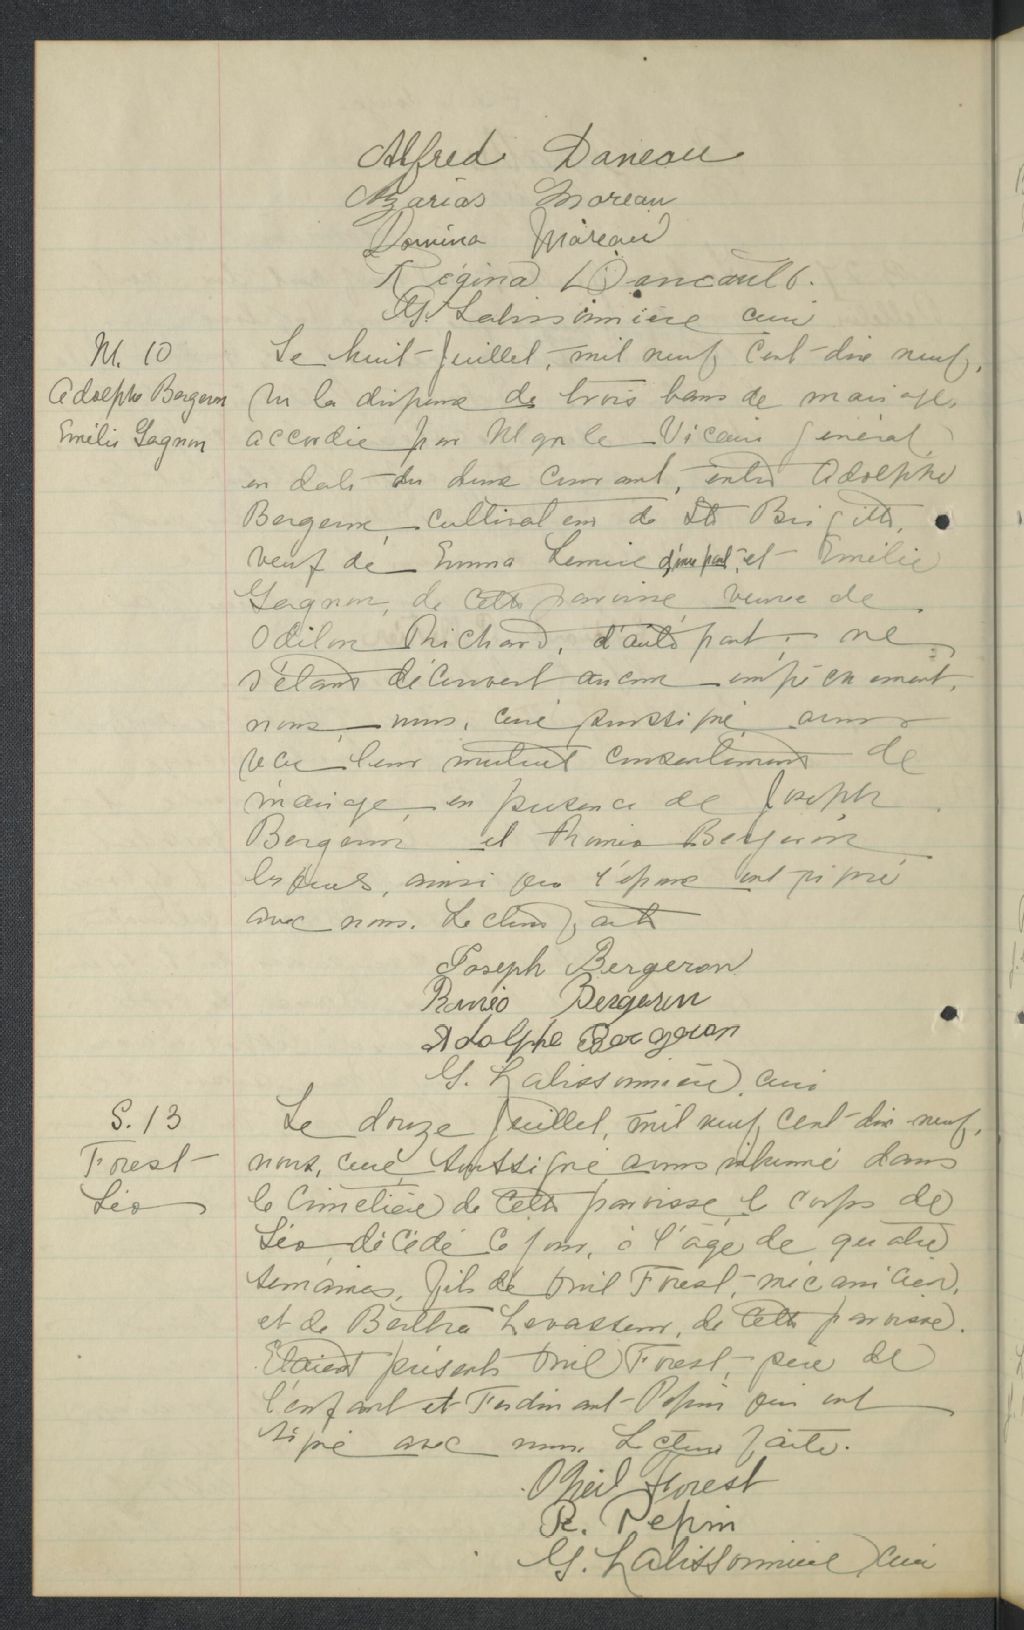 Alfred Daneau
Azarias Moreau
Domina Moreau
Régina Daneault.
G. Lalissonnière curé
M. 10
Adolphe Bergeron
Emélie Gagnon
Le huit Juillet, mil neuf cent dix neuf,
vu la dispense de trois bans de mariage,
accordée par Mgr le Vicaire général
en date du deux courant, entre Adolphe
Bergeron, cultivateur de Ste Brigitte,
veuf de Emma Lemire d'une part, et Emélie
Gagnon, de cette paroisse veuve de
Odilon Richard, d'autre part; ne
s'étant découvert aucun empêchement,
nous, curé soussigné avons
reçu leur mutuel consentement de
mariage, en présence de Joseph
Bergeron et Roméo Bergeron
lesquels, ainsi que l'époux ont signé
avec nous. Lecture faite
Joseph Bergeron
Roméo Bergeron
Adolphe Bergeron
G. Lalissonnière, curé
S. 13
Forest
Léo
Le douze Juillet, mil neuf cent dix neuf,
nous, curé soussigné avons inhumé dans
le cimetière de cette paroisse le corps de
Léo décédé ce jour, à l'âge de quatre
semaines, fils de Onil Forest, mécanicien,
et de Bertha Levasseur, de cette paroisse.
Etaient présents Onil Forest, père de
l'enfant et Ferdinant Pepin qui ont
signé avec nous. Lecture faite.
Oneil Forest
Pepin
G. Lalissonnière, curé